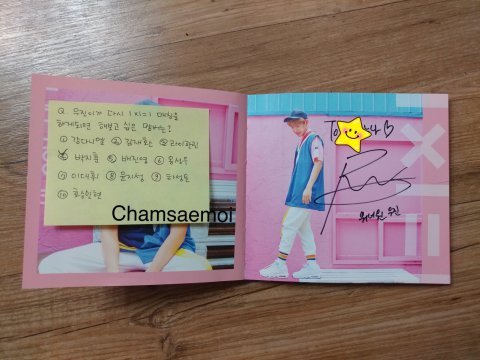 Q. 우진이가 다시 매칭을
하게되면 해보고 싶은 멤버는?
① 강다니엘 ② 김재환 ③ 라이관린
④ 박지훈 ⑤ 배진영 ⑥ 옹성우
⑦ 이대휘 ⑧ 윤지성 ⑨ 하성운
⑩ 황민현
Chamsaemol
To
워너원 우진